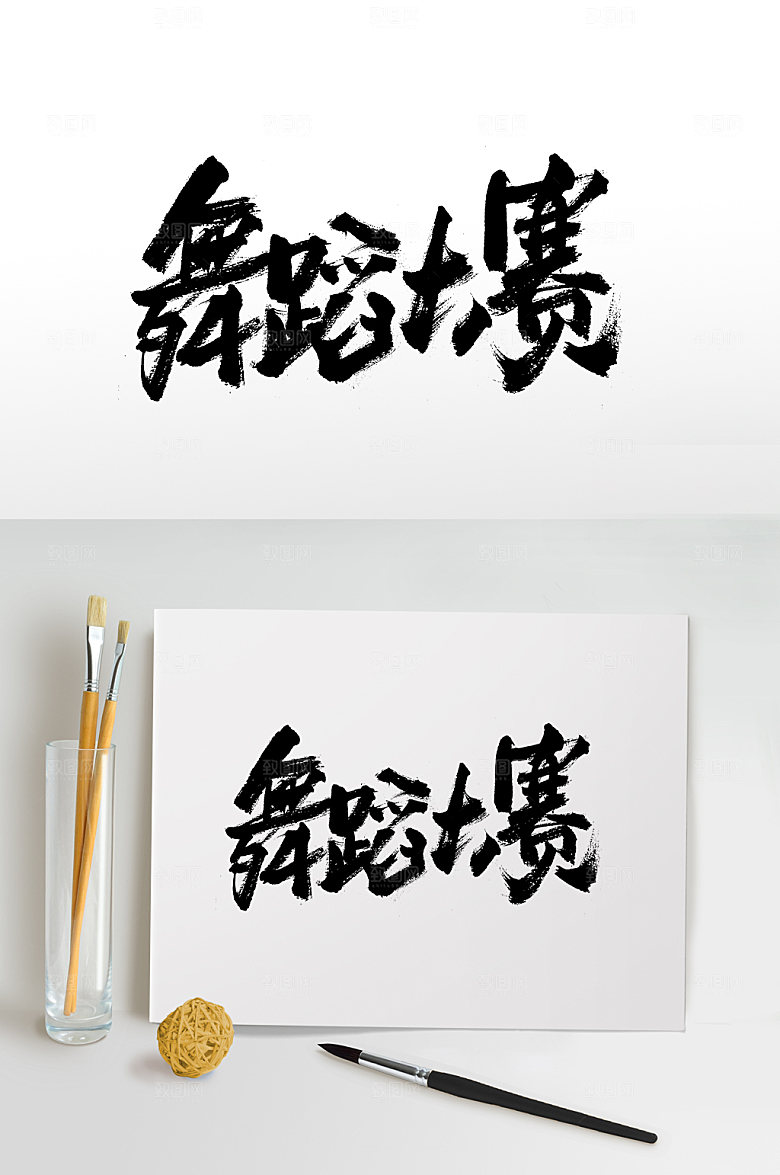 舞蹈大赛
舞蹈大赛